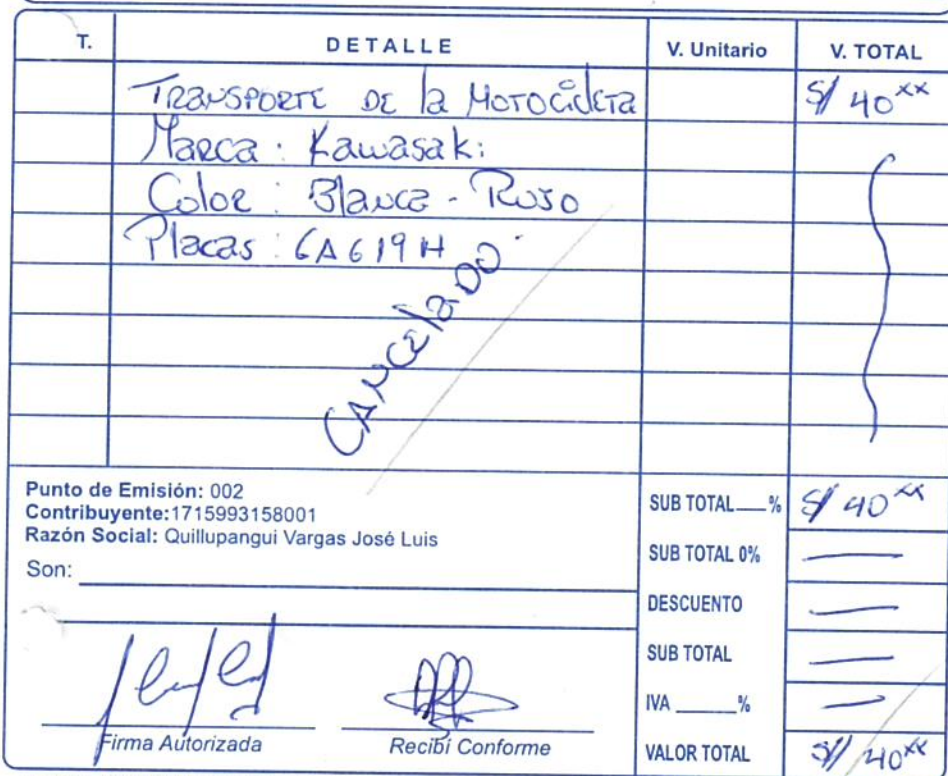 T. DETALLE V. Unitario V. TOTAL
TRANSPORTE DE la MOTOCicleTa S/ 40 xx
Marca: Kawasaki
Color: Blanca - Rojo
Placas: 6A619H
CANCELADO
Punto de Emisión: 002
Contribuyente:1715993158001
Razón Social: Quillupangui Vargas José Luis
Son:
Firma Autorizada Recibí Conforme
SUB TOTAL___% S/ 40 xx
SUB TOTAL 0% —
DESCUENTO —
SUB TOTAL —
IVA ______% —
VALOR TOTAL S/ 40 xx